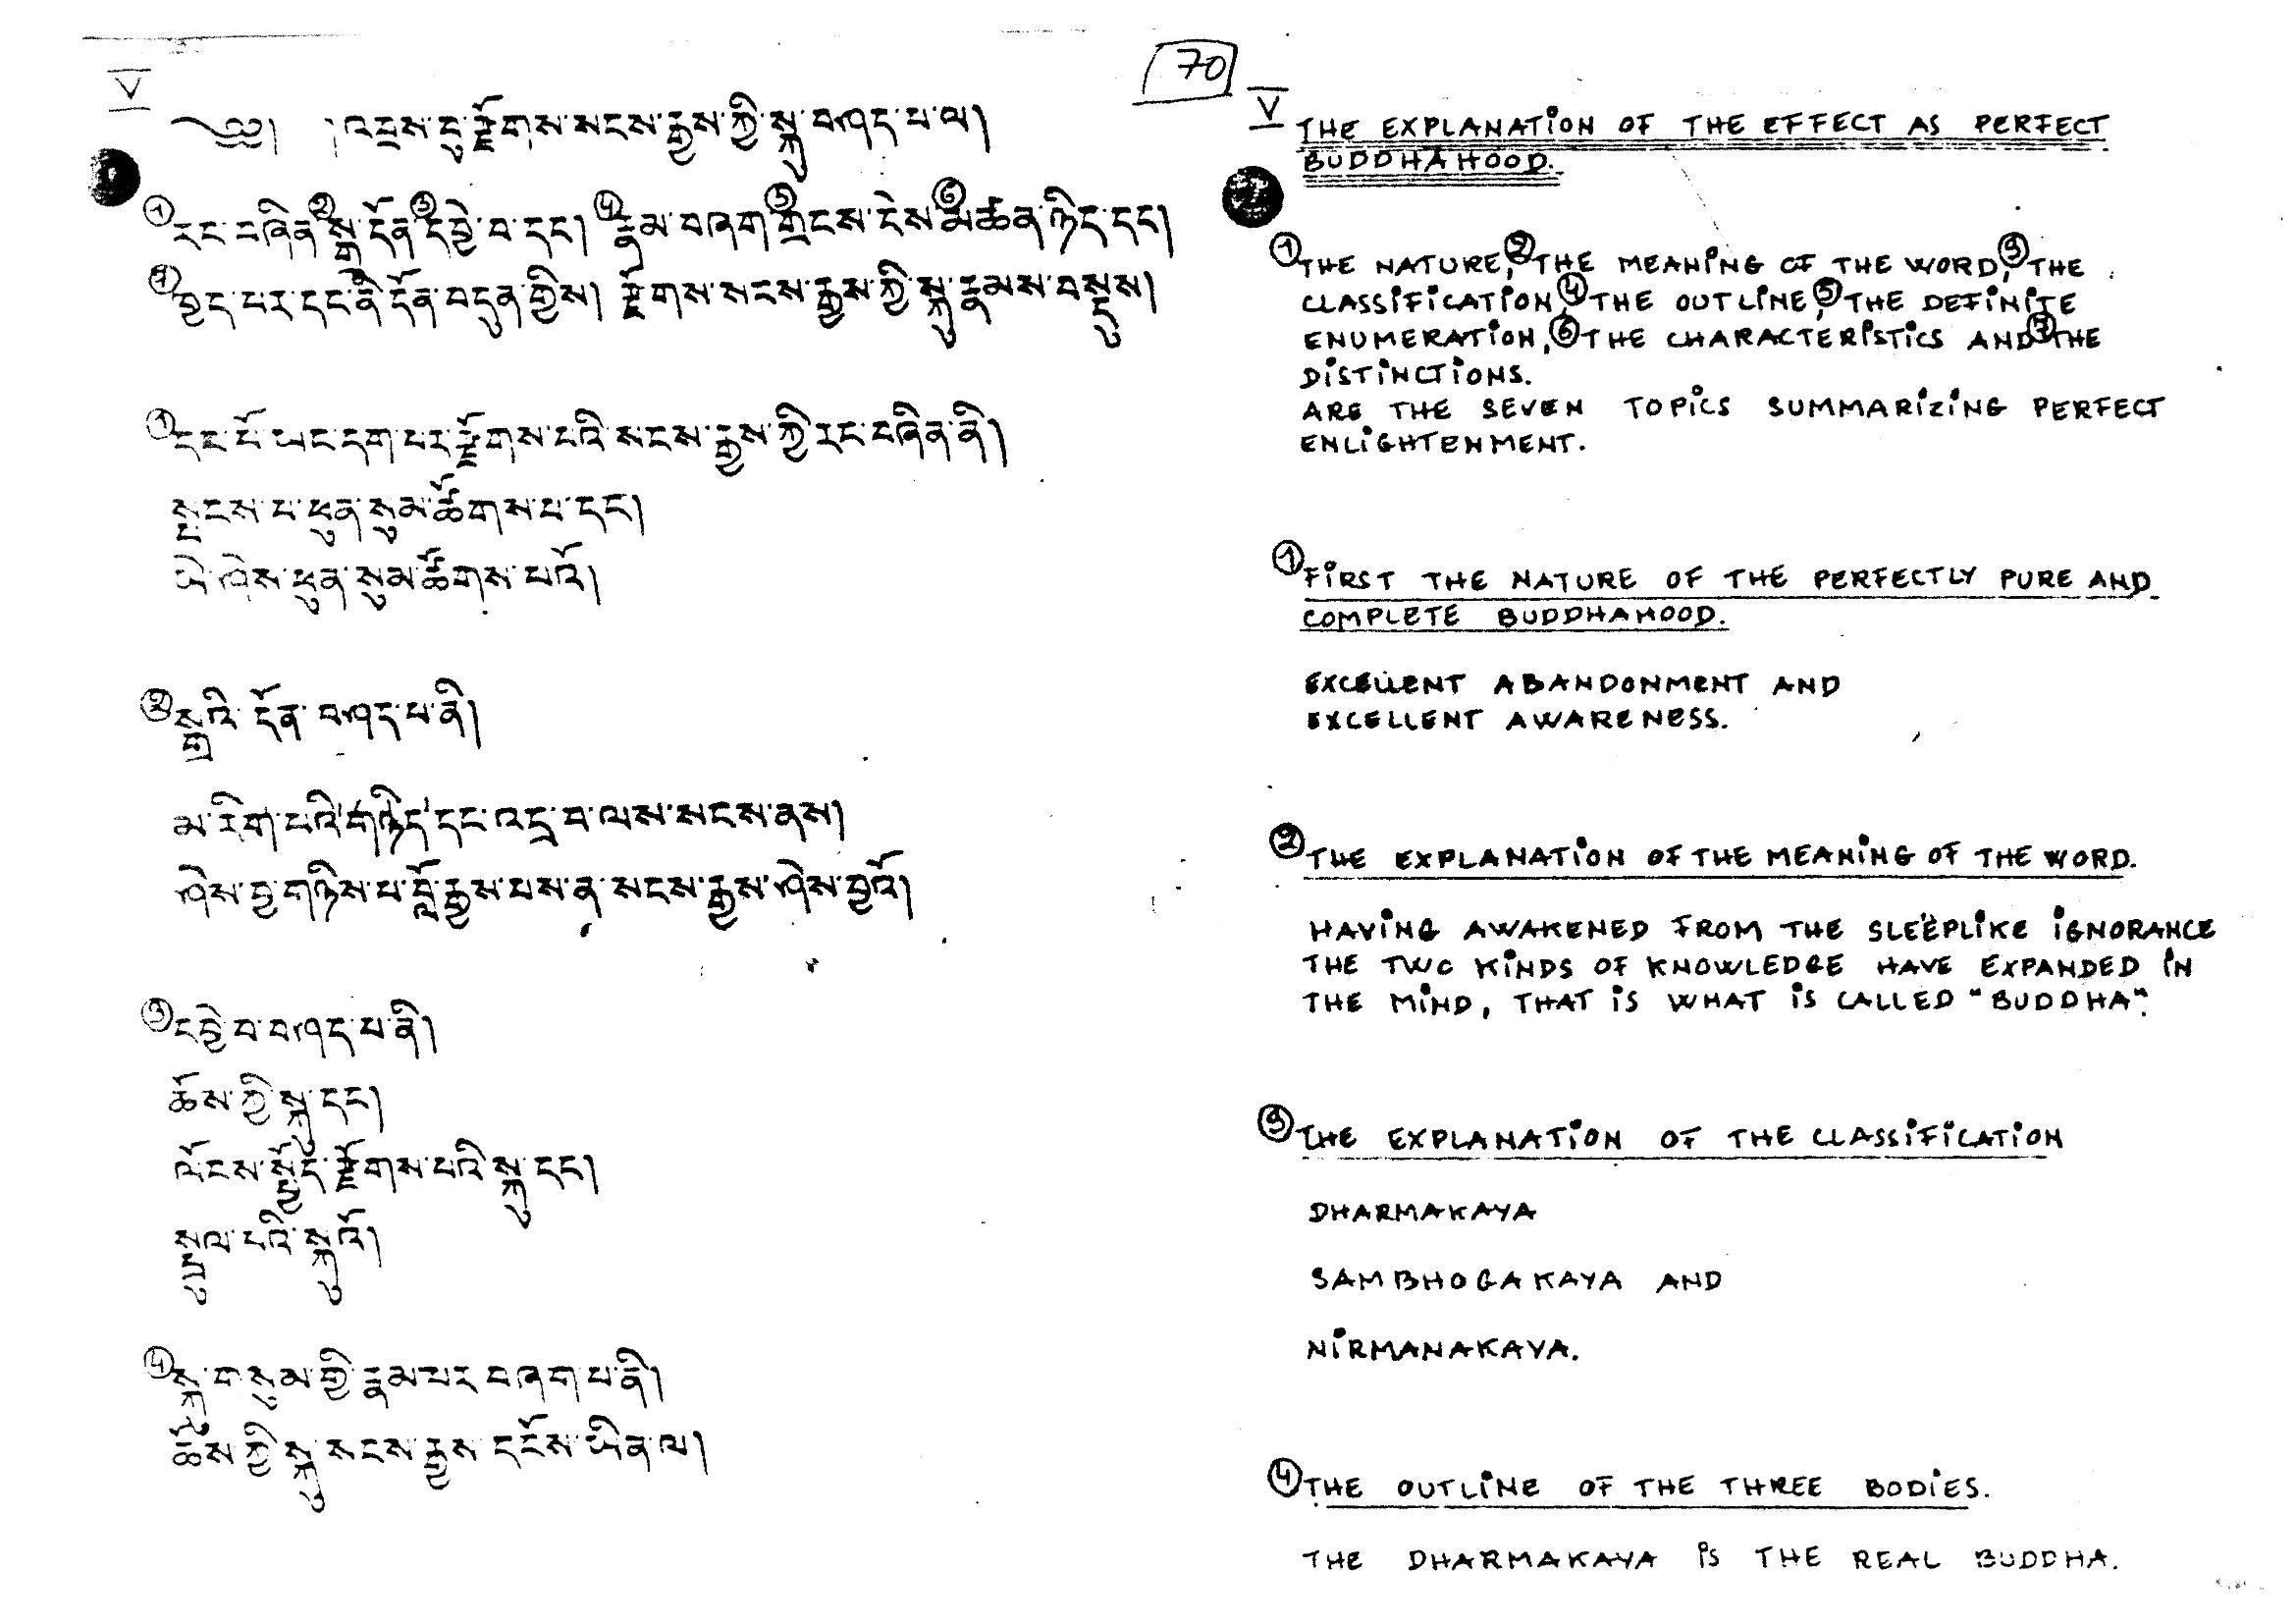 V
༄༅། །འབྲས་བུ་རྫོགས་སངས་རྒྱས་ཀྱི་སྐུ་བཤད་པ་ལ།
① རང་བཞིན་② སྒྲ་དོན་③ དབྱེ་བ་དང། ④ རྣམ་བཞག་⑤ གྲངས་ངེས་⑥ མཚན་ཉིད་དང།
⑦ ཁྱད་པར་དང་ནི་དོན་བདུན་གྱིས། རྫོགས་སངས་རྒྱས་ཀྱི་སྐུ་རྣམས་བསྡུས།
① དང་པོ་ཡང་དག་པར་རྫོགས་པའི་སངས་རྒྱས་ཀྱི་རང་བཞིན་ནི།
སྤངས་པ་ཕུན་སུམ་ཚོགས་པ་དང།
ཡེ་ཤེས་ཕུན་སུམ་ཚོགས་པའོ།
② སྒྲའི་དོན་བཤད་པ་ནི།
མ་རིག་པའི་གཉིད་དང་འདྲ་བ་ལས་སངས་ནས།
ཤེས་བྱ་གཉིས་པ་བློ་རྒྱས་པས་ན་སངས་རྒྱས་ཤེས་བྱའོ།
③ དབྱེ་བ་བཤད་པ་ནི།
ཆོས་ཀྱི་སྐུ་དང།
ལོངས་སྤྱོད་རྫོགས་པའི་སྐུ་དང།
སྤྲུལ་པའི་སྐུའོ།
④ སྐུ་གསུམ་གྱི་རྣམ་པར་བཞག་པ་ནི།
ཆོས་ཀྱི་སྐུ་སངས་རྒྱས་དངོས་ཡིན་ལ།
70
V
THE EXPLANATION OF THE EFFECT AS PERFECT
BUDDHAHOOD.
① THE NATURE, ② THE MEANING OF THE WORD, ③ THE
CLASSIFICATION, ④ THE OUTLINE, ⑤ THE DEFINITE
ENUMERATION, ⑥ THE CHARACTERISTICS AND ⑦ THE
DISTINCTIONS.
ARE THE SEVEN TOPICS SUMMARIZING PERFECT
ENLIGHTENMENT.
① FIRST THE NATURE OF THE PERFECTLY PURE AND
COMPLETE BUDDHAHOOD.
EXCELLENT ABANDONMENT AND
EXCELLENT AWARENESS.
② THE EXPLANATION OF THE MEANING OF THE WORD.
HAVING AWAKENED FROM THE SLEEPLIKE IGNORANCE
THE TWO KINDS OF KNOWLEDGE HAVE EXPANDED IN
THE MIND, THAT IS WHAT IS CALLED "BUDDHA".
③ THE EXPLANATION OF THE CLASSIFICATION
DHARMAKAYA
SAMBHOGAKAYA AND
NIRMANAKAYA.
④ THE OUTLINE OF THE THREE BODIES.
THE DHARMAKAYA IS THE REAL BUDDHA.